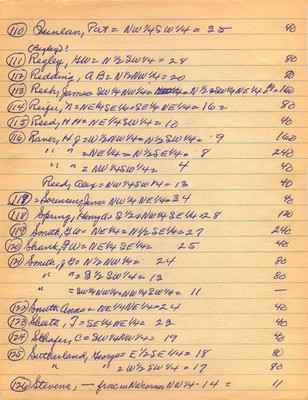 (110) Dunlan, Pat = NW¼SW¼ = 35 40
(Bigley)?
(111) Regley, GW = N½SW¼ = 28 80
(112) Redding, AB = N½NW¼ = 20 80
(113) Reeb, James SW¼NW¼ = N½SW¼ 160
(114) Reifer, N = NE¼SE¼ = SE¼NE¼ = 16 = 80
(115) Reed, HH = NE¼SW¼ = 10 40
(116) Raver, HJ = W½NW¼ = N½SW¼ = 9 160
" " = NE¼ = N½SE¼ = 8 240
" " = NW¼SW¼ = 4 40
Reed, Alex = NW¼SW¼ = 13 40
(117) = NW¼NE¼ = 34 40
(118) Spring, Henry = S½NW¼SE¼ = 28 120
(119) Smith, GW = NE¼ = N½SE¼ = 27 240
(120) Shank, GW = NE¼SE¼ = 25 40
(121) Smith, JG = N½NW¼ = 24 80
" " = S½SW¼ = 13 80
" = SW¼NW¼ = NW¼SW¼ = 11 —
(122) Smith Anna = NE¼NE¼ = 24 40
(123) Sheets, J = SE¼NE¼ = 23 40
(124) C = SW¼NW¼ = 19 40
(125) Sutherland, George = E½SE¼ = 18 80
" " = W½SW¼ = 17 80
(126) Stevens, — frac in NW corner NW¼ - 14 = 11